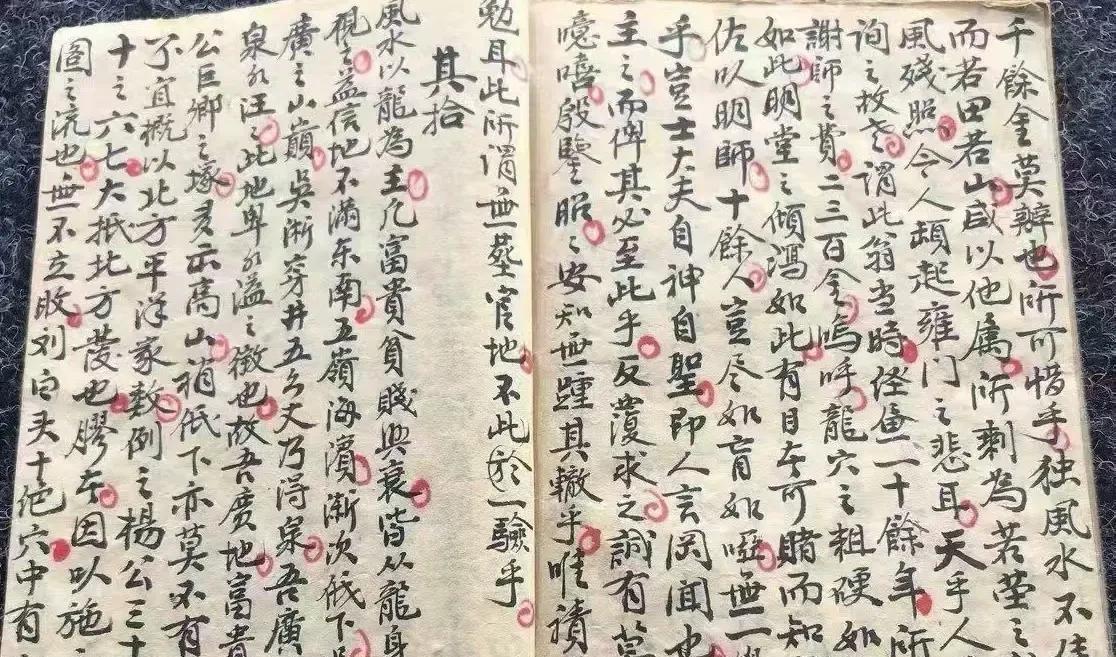 千餘金莫辦也所可惜乎独風水不
而若田若山咸以他属所剩為若茔之
風残照令人頓起雍门之悲耳天乎人
询之故老謂此翁当時径但一十餘年所
謝師之費二三百金嗚呼龍穴之粗硬如
如此明堂之傾瀉如此有目本可賭而知
佐以明師十餘人豈尽如盲如啞無一
乎豈士大夫自神自聖即人言罔闻
主之而俾其必至此乎反覆求之誠有
噫嘻殷鑒昭之安知無踵其轍乎唯積
勉耳此所謂無塟官地不此於一驗乎
其拾
風水以龍為主凡富貴貧賤興衰皆从龍身
視之益信地不满东南五嶺海濱漸次低下
廣之山巔吳浙穿井五六丈乃得泉吾廣
泉水汪之此地卑水溢之徵也故吾廣地富貴
公巨鄉之塚多云高山稍低下亦莫不有
了宜概以北方平洋家数例之楊公三十
十之六七大抵北方蔓也膠本因以施
圖之流也無不立敗刘白头十绝穴中有